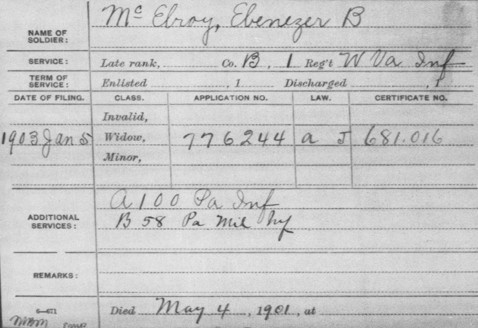 Mc Elroy, Ebenezer B
NAME OF SOLDIER:
SERVICE: Late rank, Co. B, 1 Reg't W Va Inf
TERM OF SERVICE: Enlisted , 1 Discharged , 1
DATE OF FILING. CLASS. APPLICATION NO. LAW. CERTIFICATE NO.
Invalid,
1903 Jan 5 Widow, 776244 a J 681.016
Minor,
ADDITIONAL SERVICES: A 100 Pa Inf
B 58 Pa Mil Inf
REMARKS:
Died May 4, 1901, at